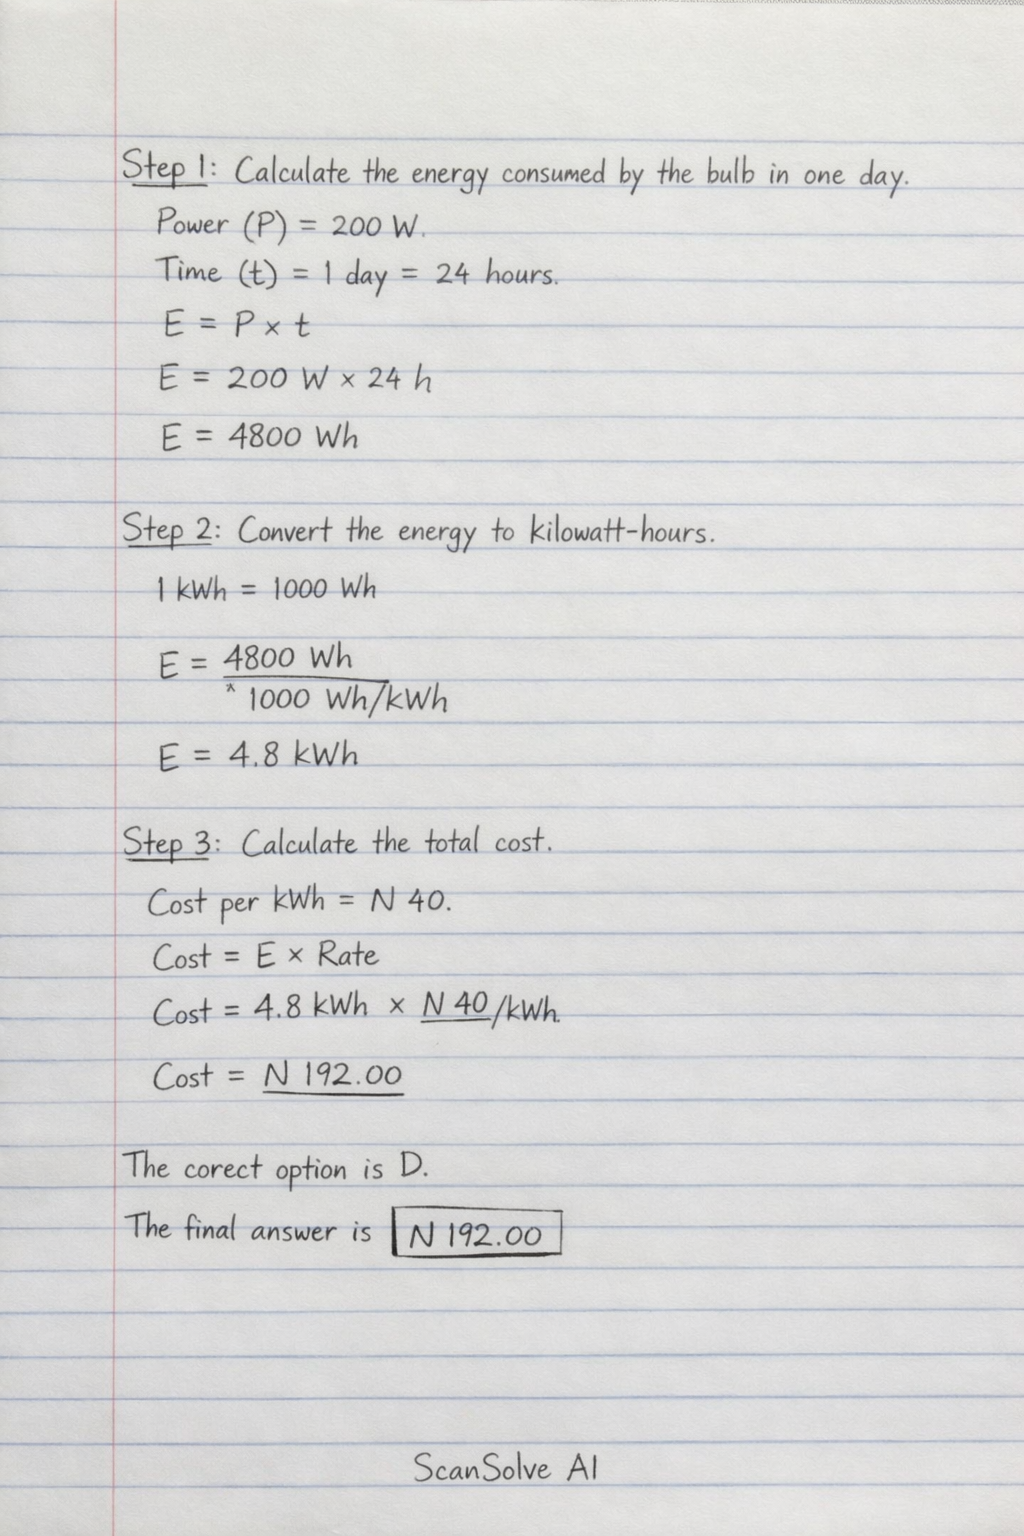 Step 1: Calculate the energy consumed by the bulb in one day.
Power (P) = 200 W.
Time (t) = 1 day = 24 hours.
E = P × t
E = 200 W × 24 h
E = 4800 Wh
Step 2: Convert the energy to kilowatt-hours.
1 kWh = 1000 Wh
E = 4800 Wh
* 1000 Wh/kWh
E = 4.8 kWh
Step 3: Calculate the total cost.
Cost per kWh = N 40.
Cost = E × Rate
Cost = 4.8 kWh × N 40/kWh.
Cost = N 192.00
The corect option is D.
The final answer is N 192.00
ScanSolve AI